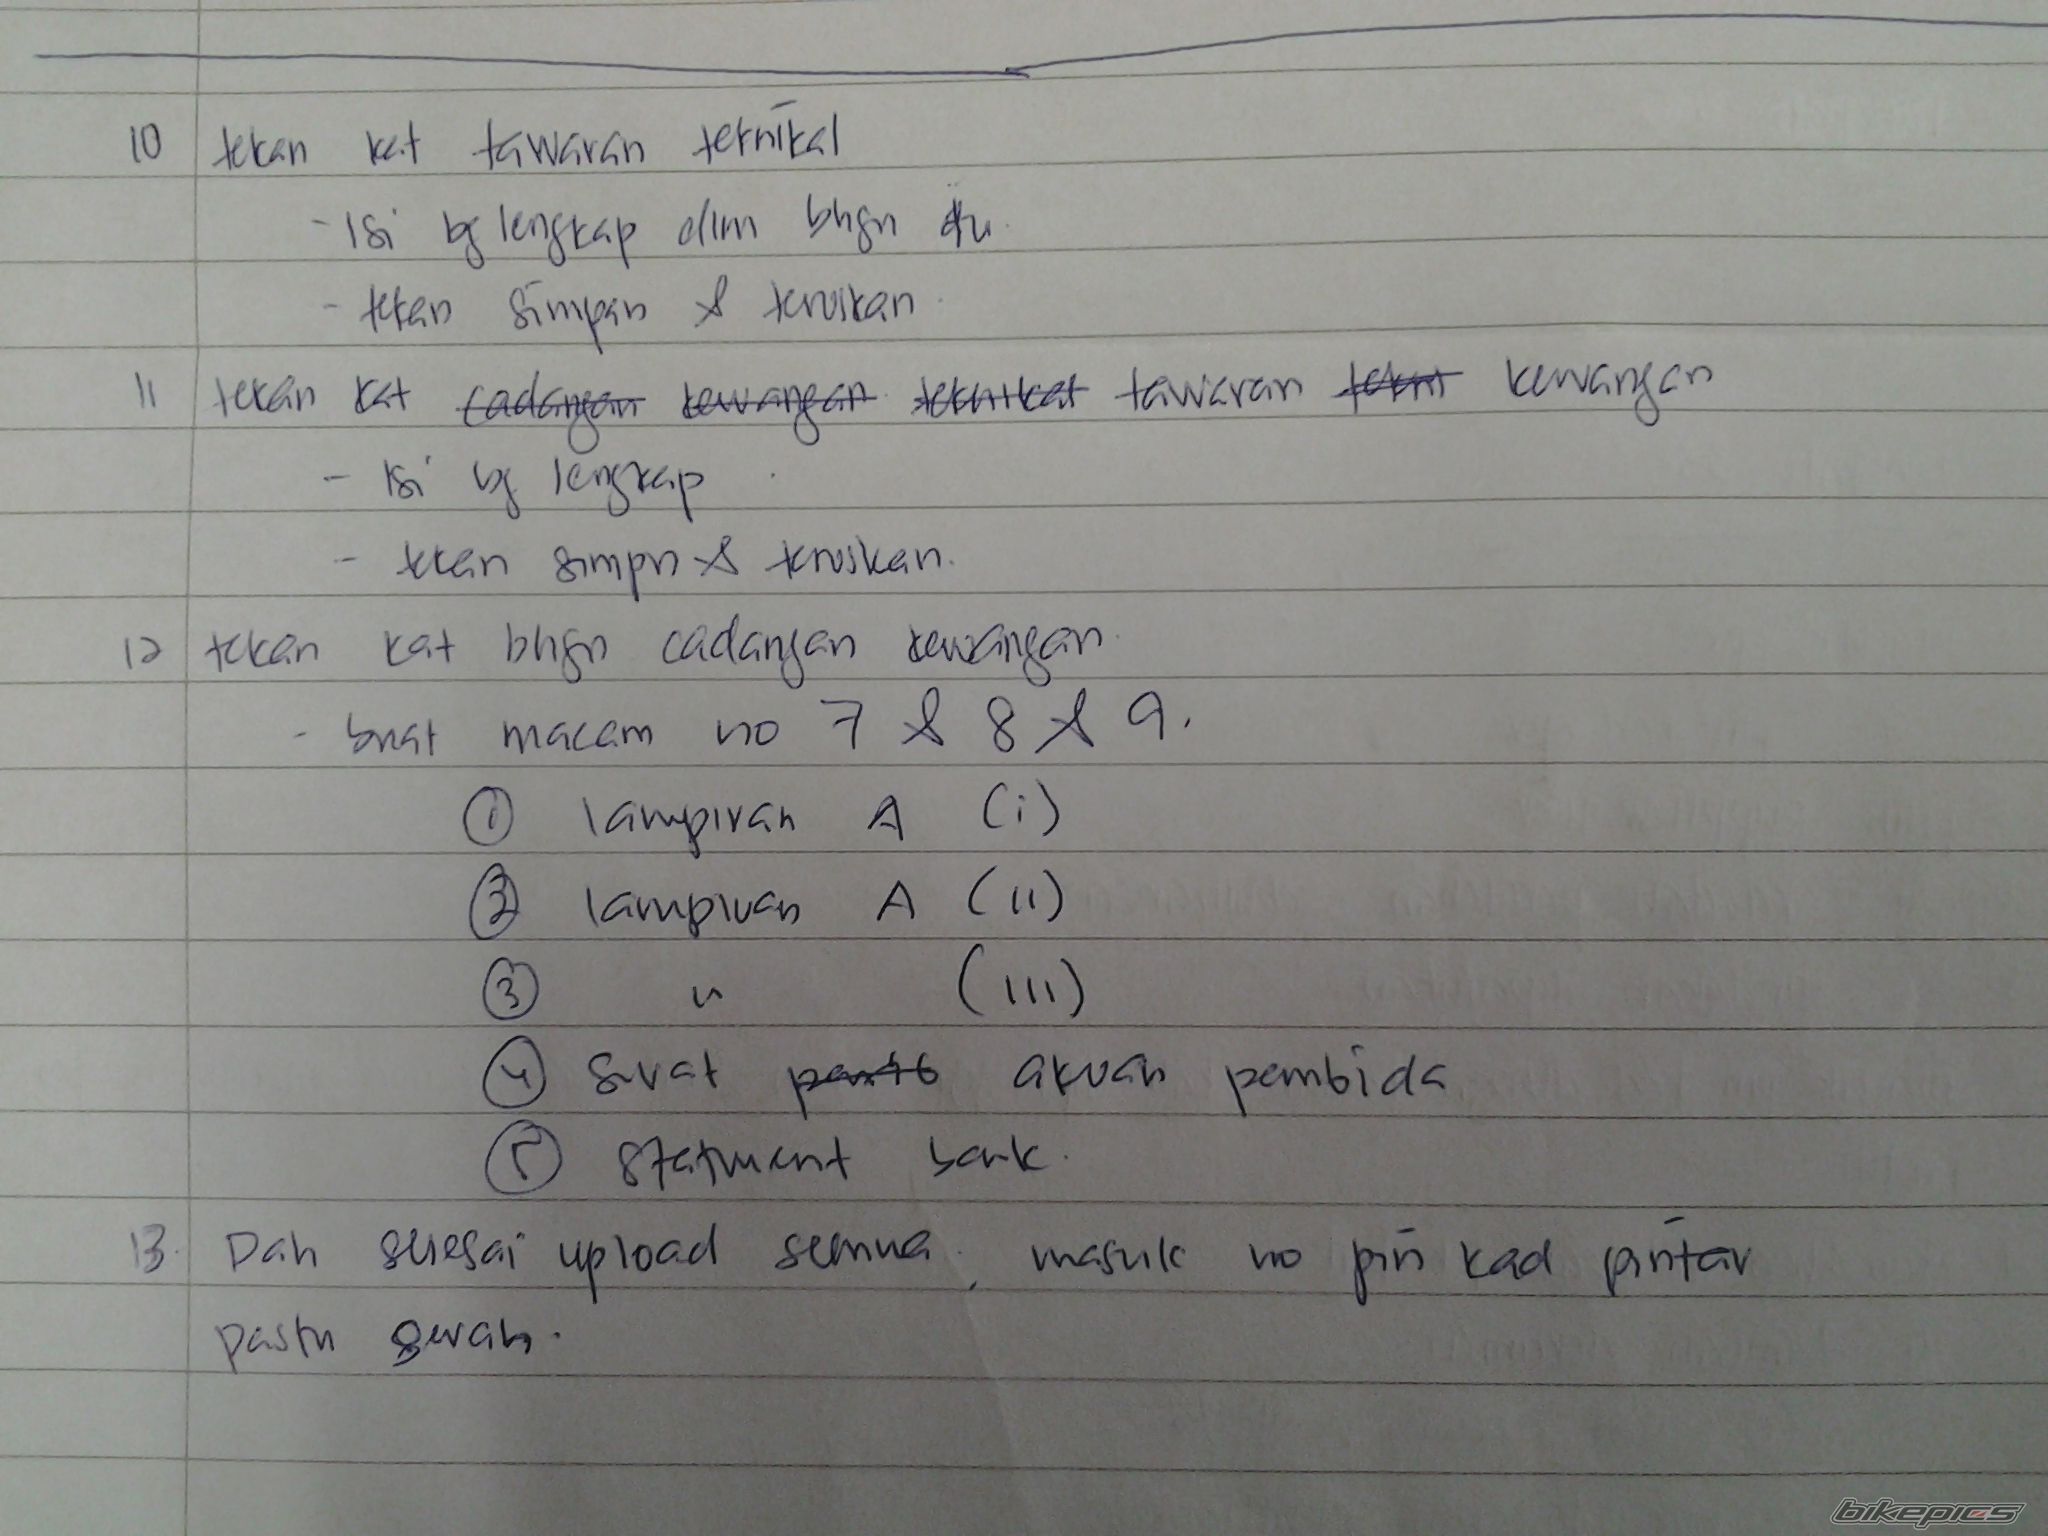 10 tekan kat tawaran teknikal
- Isi bg lengkap dlm bhgn itu.
- tekan simpan & teruskan.
11 tekan kat cadangan kewangan teknikal tawaran tekni kewangan
- Isi bg lengkap
- tekan simpn & teruskan.
12 tekan kat bhgn cadangan kewangan.
- buat macam no 7 & 8 & 9.
① lampiran A (i)
② lampiran A (ii)
③ " (iii)
④ surat akuan pembida
⑤ statment bank.
13. Dah selesai upload semua, masuk no pin kad pintar
pastu serah.
bikepics